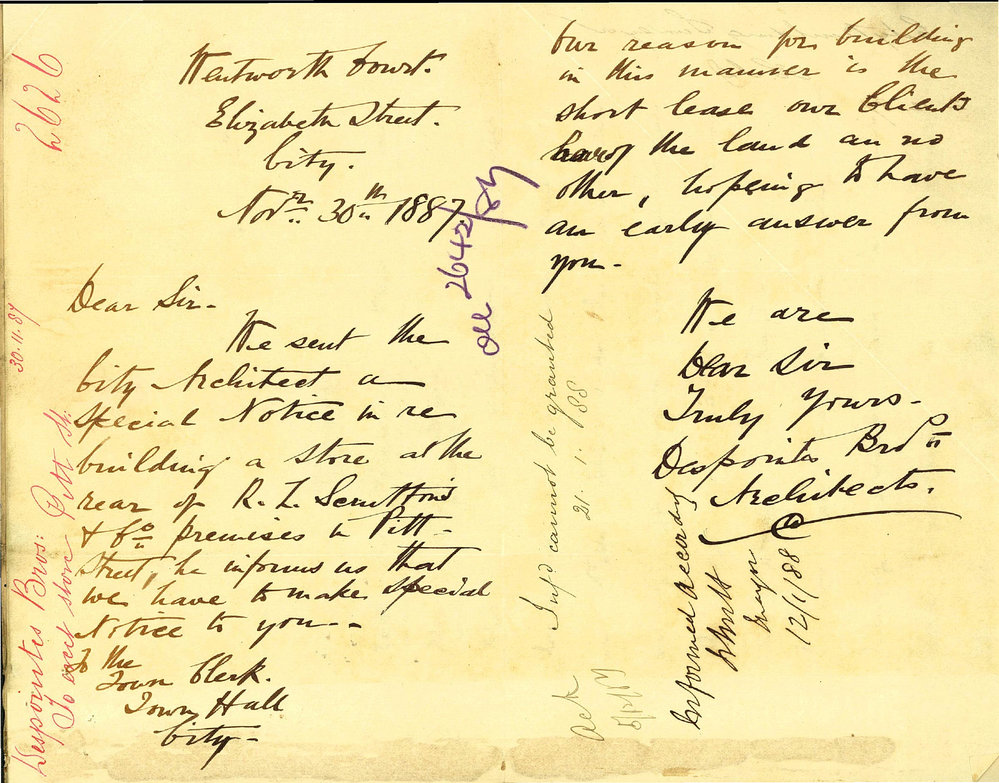 Wentworth Court.
Elizabeth Street.
City.
Novr. 30th 1887.
Dear Sir-
We sent the
City Architect a
special Notice in re
building a store at the
rear of R. L. Scrutton's
& Co premises in Pitt-
Street, he informs us that
we have to make special
Notice to you--
To the
Town Clerk.
Town Hall
City-
Our reason for building
in this manner is the
short lease our Clients
have of the land an no
other, hopeing to have
an early answer from
you-
We are
Dear Sir
Truly Yours-
Despointes Bros
Architects.
2626
30.11.87
Despointes Bros:
To erect store Pitt St.
2642/87
Inf'd cannot be granted
21.1.88
Ack
Informed accordg
Mayor
12/1/88